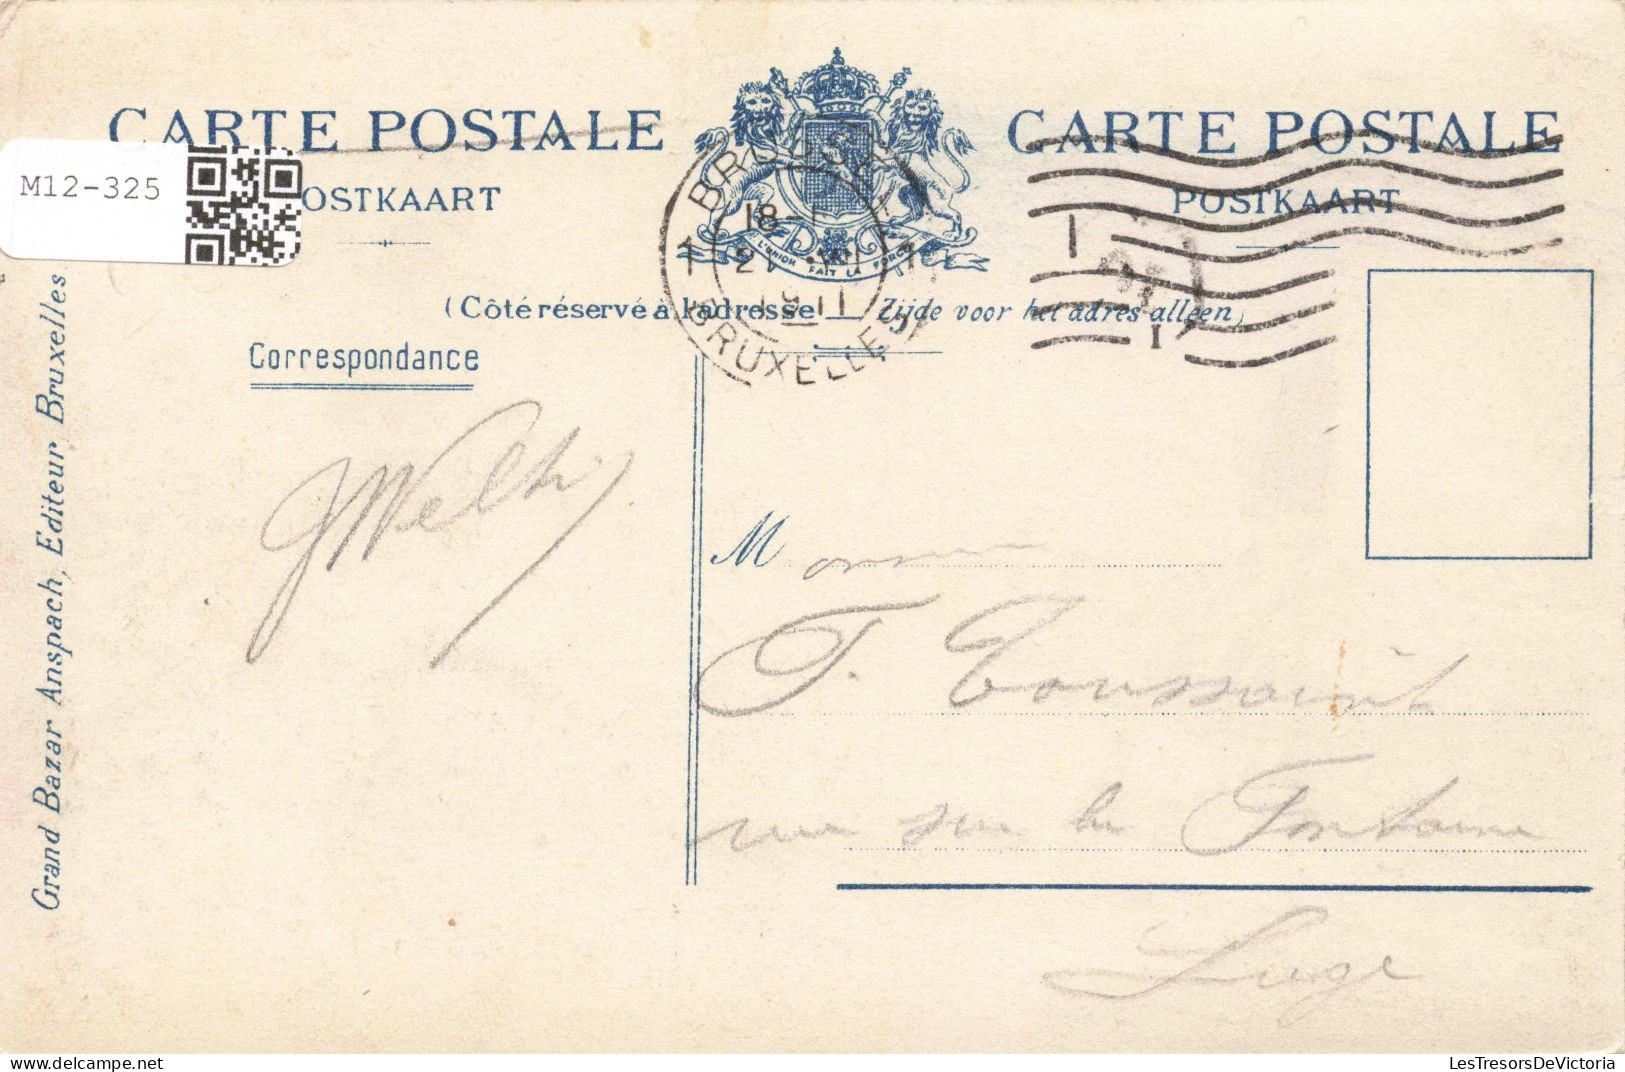 CARTE POSTALE
CARTE POSTALE
M12-325
OSTKAART
POSTKAART
L'UNION FAIT LA FORCE
BRUSSEL
18-1
1911
BRUXELLES
(Côté réservé à l'adresse — Zijde voor het adres alleen)
Correspondance
Grand Bazar Anspach, Editeur, Bruxelles
M
T. Toussaint
rue sur la Fontaine
Liege
LesTresorsDeVictoria